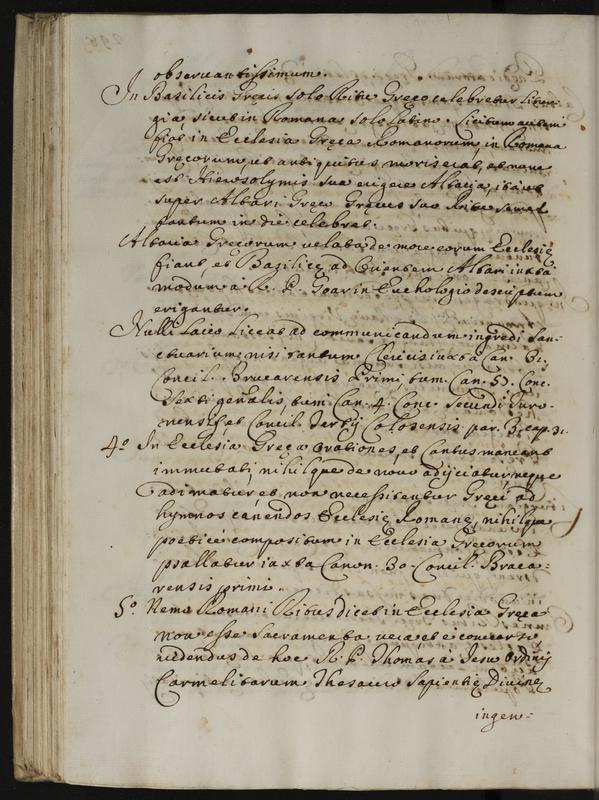 observantissimum.
In Basilicis Gręcis solo Ritu Gręco celebretur Litur-
gia, sicut in Romana solo Latino. Licitum autem
fiat in Ecclesia Gręca Romanorum, in Romana
Gręcorum, ut antiquitus moris erat, et nunc
est Hierosolymis sua erigere Altaria, ita ut
super Altari Gręco Gręcus suo Ritu semel
tantum in die celebret.
Altaria Gręcorum velata de more eorum Ecclesię
fiant, et Basilicę ad Orientem Altari iuxta
modum a R. P. Goar in Euchologio descriptum
erigantur.
Nulli Laico liceat ad communicandum ingredi San-
ctuarium nisi tantum Clericis iuxta Can. 31.
Concil. Bracarensis Primi, tum Can. 55. Conc.
Sexti gen̄alis, tum Can. 4. Conc. Secundi Turo-
nensis, et Concil. Tertij Colosensis par. 3. cap. 31.
4.º In Ecclesia Gręca orationes, et Cantus maneant
immutati, nihilque de novo adijciatur, neque
adimatur, et non necessitentur Gręci ad
hymnos canendos Ecclesię Romanę, nihilque
poetice compositum in Ecclesia Gręcorum
psallatur iuxta Canon. 30. Concil. Braca:
rensis primi.
5.º Nemo Romani Ritus dicet in Ecclesia Gręca
non esse Sacramenta vera et ei
videndus de hoc R. P. Thomas à Jesu Ordinis
Carmelitarum Thesauro Sapientię Divinę
ingen=